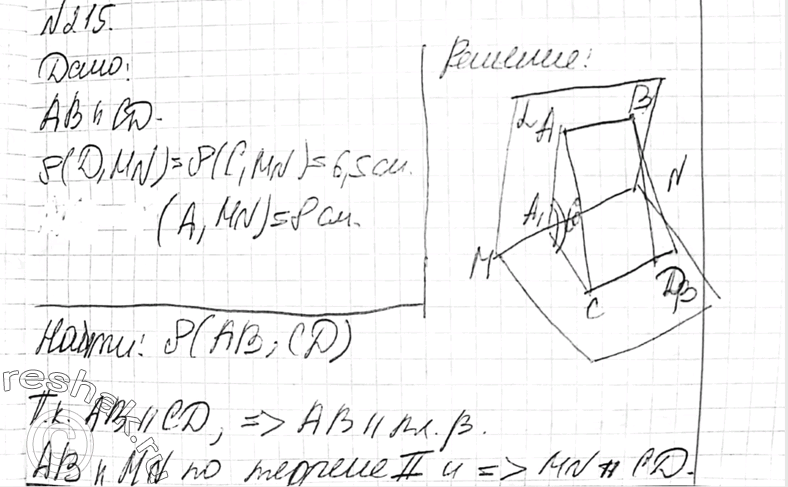 N215.
Дано:
AB ∥ CD.
ρ(D, MN) = ρ(C, MN) = 6,5 см.
(A, MN) = 8 см.
Найти: ρ(AB; CD)
Решение:
α
A
B
A₁
N
M
C
D
β
Т.к. AB ∥ CD, => AB ∥ пл. β.
AB ∥ MN по теореме II и => MN ∥ CD.
reshak.ru